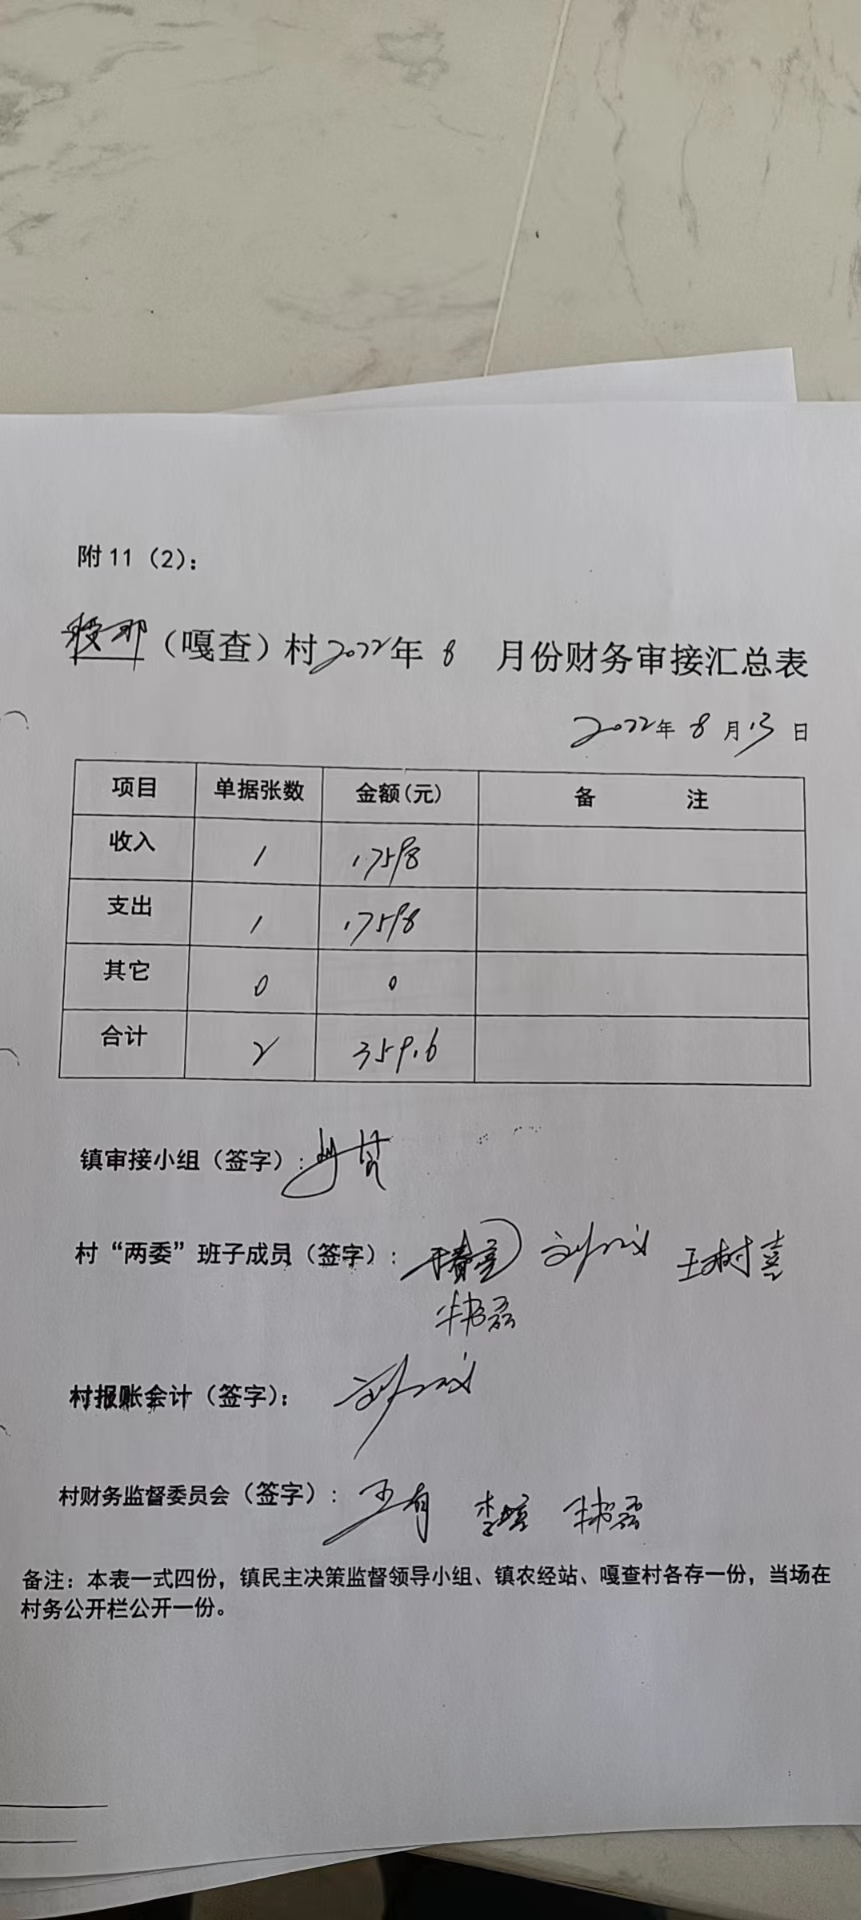 附11（2）：
（嘎查）村2022年 8 月份财务审接汇总表
2022年 8 月13日
项目 单据张数 金额(元) 备 注
收入 1 1759.8
支出 1 1759.8
其它 0 0
合计 2 359.6
镇审接小组（签字）：
村“两委”班子成员（签字）： 王树喜
村报账会计（签字）：
村财务监督委员会（签字）： 王有
备注：本表一式四份，镇民主决策监督领导小组、镇农经站、嘎查村各存一份，当场在
村务公开栏公开一份。